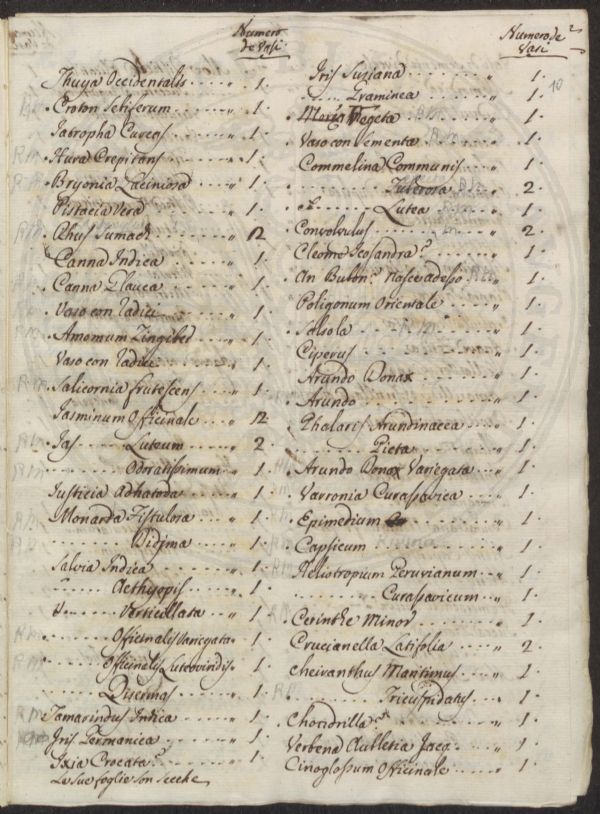 Numero
de Vasi
Thuya Occidentalis . . . . " 1.
Croton Sebiferum . . . . " 1.
Iatropha Curcas . . . . " 1.
Hura Crepitans . . . . " 1.
Bryonia Laciniosa . . . . " 1.
Pistacia Vera . . . . " 1.
Rhus Sumach . . . . " 12
Canna Indica . . . . " 1.
Canna Glauca . . . . " 1.
Vaso con Radici . . . . " 1.
Amomum Zingiber . . . . " 1.
Vaso con Radici . . . . " 1.
Salicornia frutescens . . . . " 1.
Iasminum Officinale . . . . " 12.
Jas . . . . Luteum . . . . " 2.
. . . . Odoratissimum . . . . " 1.
Iusticia Adhatoda . . . . " 1.
Monarda Fistulosa . . . . " 1.
. . . . Didima . . . . " 1.
Salvia Indica . . . . " 1.
" . . . . Aethyopis . . . . " 1.
" . . . . Verticillata . . . . " 1.
. . . . Officinalis Variegata . . " 1.
. . . . Officinalis Luteovindis . . " 1.
. . . . " 1.
Tamarindus Indica . . . . " 1.
Iris Germanica . . . . " 1.
Ixia Crocata? . . . . " 1.
Le sue foglie son secche
Numero de
Vasi
10
Iris Susiana . . . . " 1.
. . . . Graminea . . . . " 1.
Vegeta . . . . " 1.
Vaso con Sementa . . . . " 1.
Commelina Communis . . . . " 1.
. . . . Tuberosa . . . . " 2.
. . . . Lutea . . . . " 1.
Convolvulus . . . . " 2.
Cleome Icosandra? . . . . " 1.
An Bulbo? Nasce adesso . . " 1.
Poligonum Orientale . . . . " 1.
Salsola . . . . " 1.
Ciperus . . . . " 1.
Arundo Donax . . . . " 1.
Arundo . . . . " 1.
Phalaris Arundinacea . . . . " 1.
. . . . Picta . . . . " 1.
Arundo Donax Variegata . . " 1.
Varronia Curassavica . . . . " 1.
Epimedium . . . . " 1.
Capsicum . . . . " 1.
Heliotropium Peruvianum . . . . " 1.
. . . . Curassavicum . . " 1.
Cerinthe Minor . . . . " 1.
Crucianella Latifolia . . . . " 2.
Cheiranthus Maritimus . . . . " 1
. . . . Tricuspidatus . . . . " 1.
Chondrilla . . . . " 1.
Verbena Aubletia Jacq. . . . . " 1.
Cinoglossum Officinale . . . . " 1.